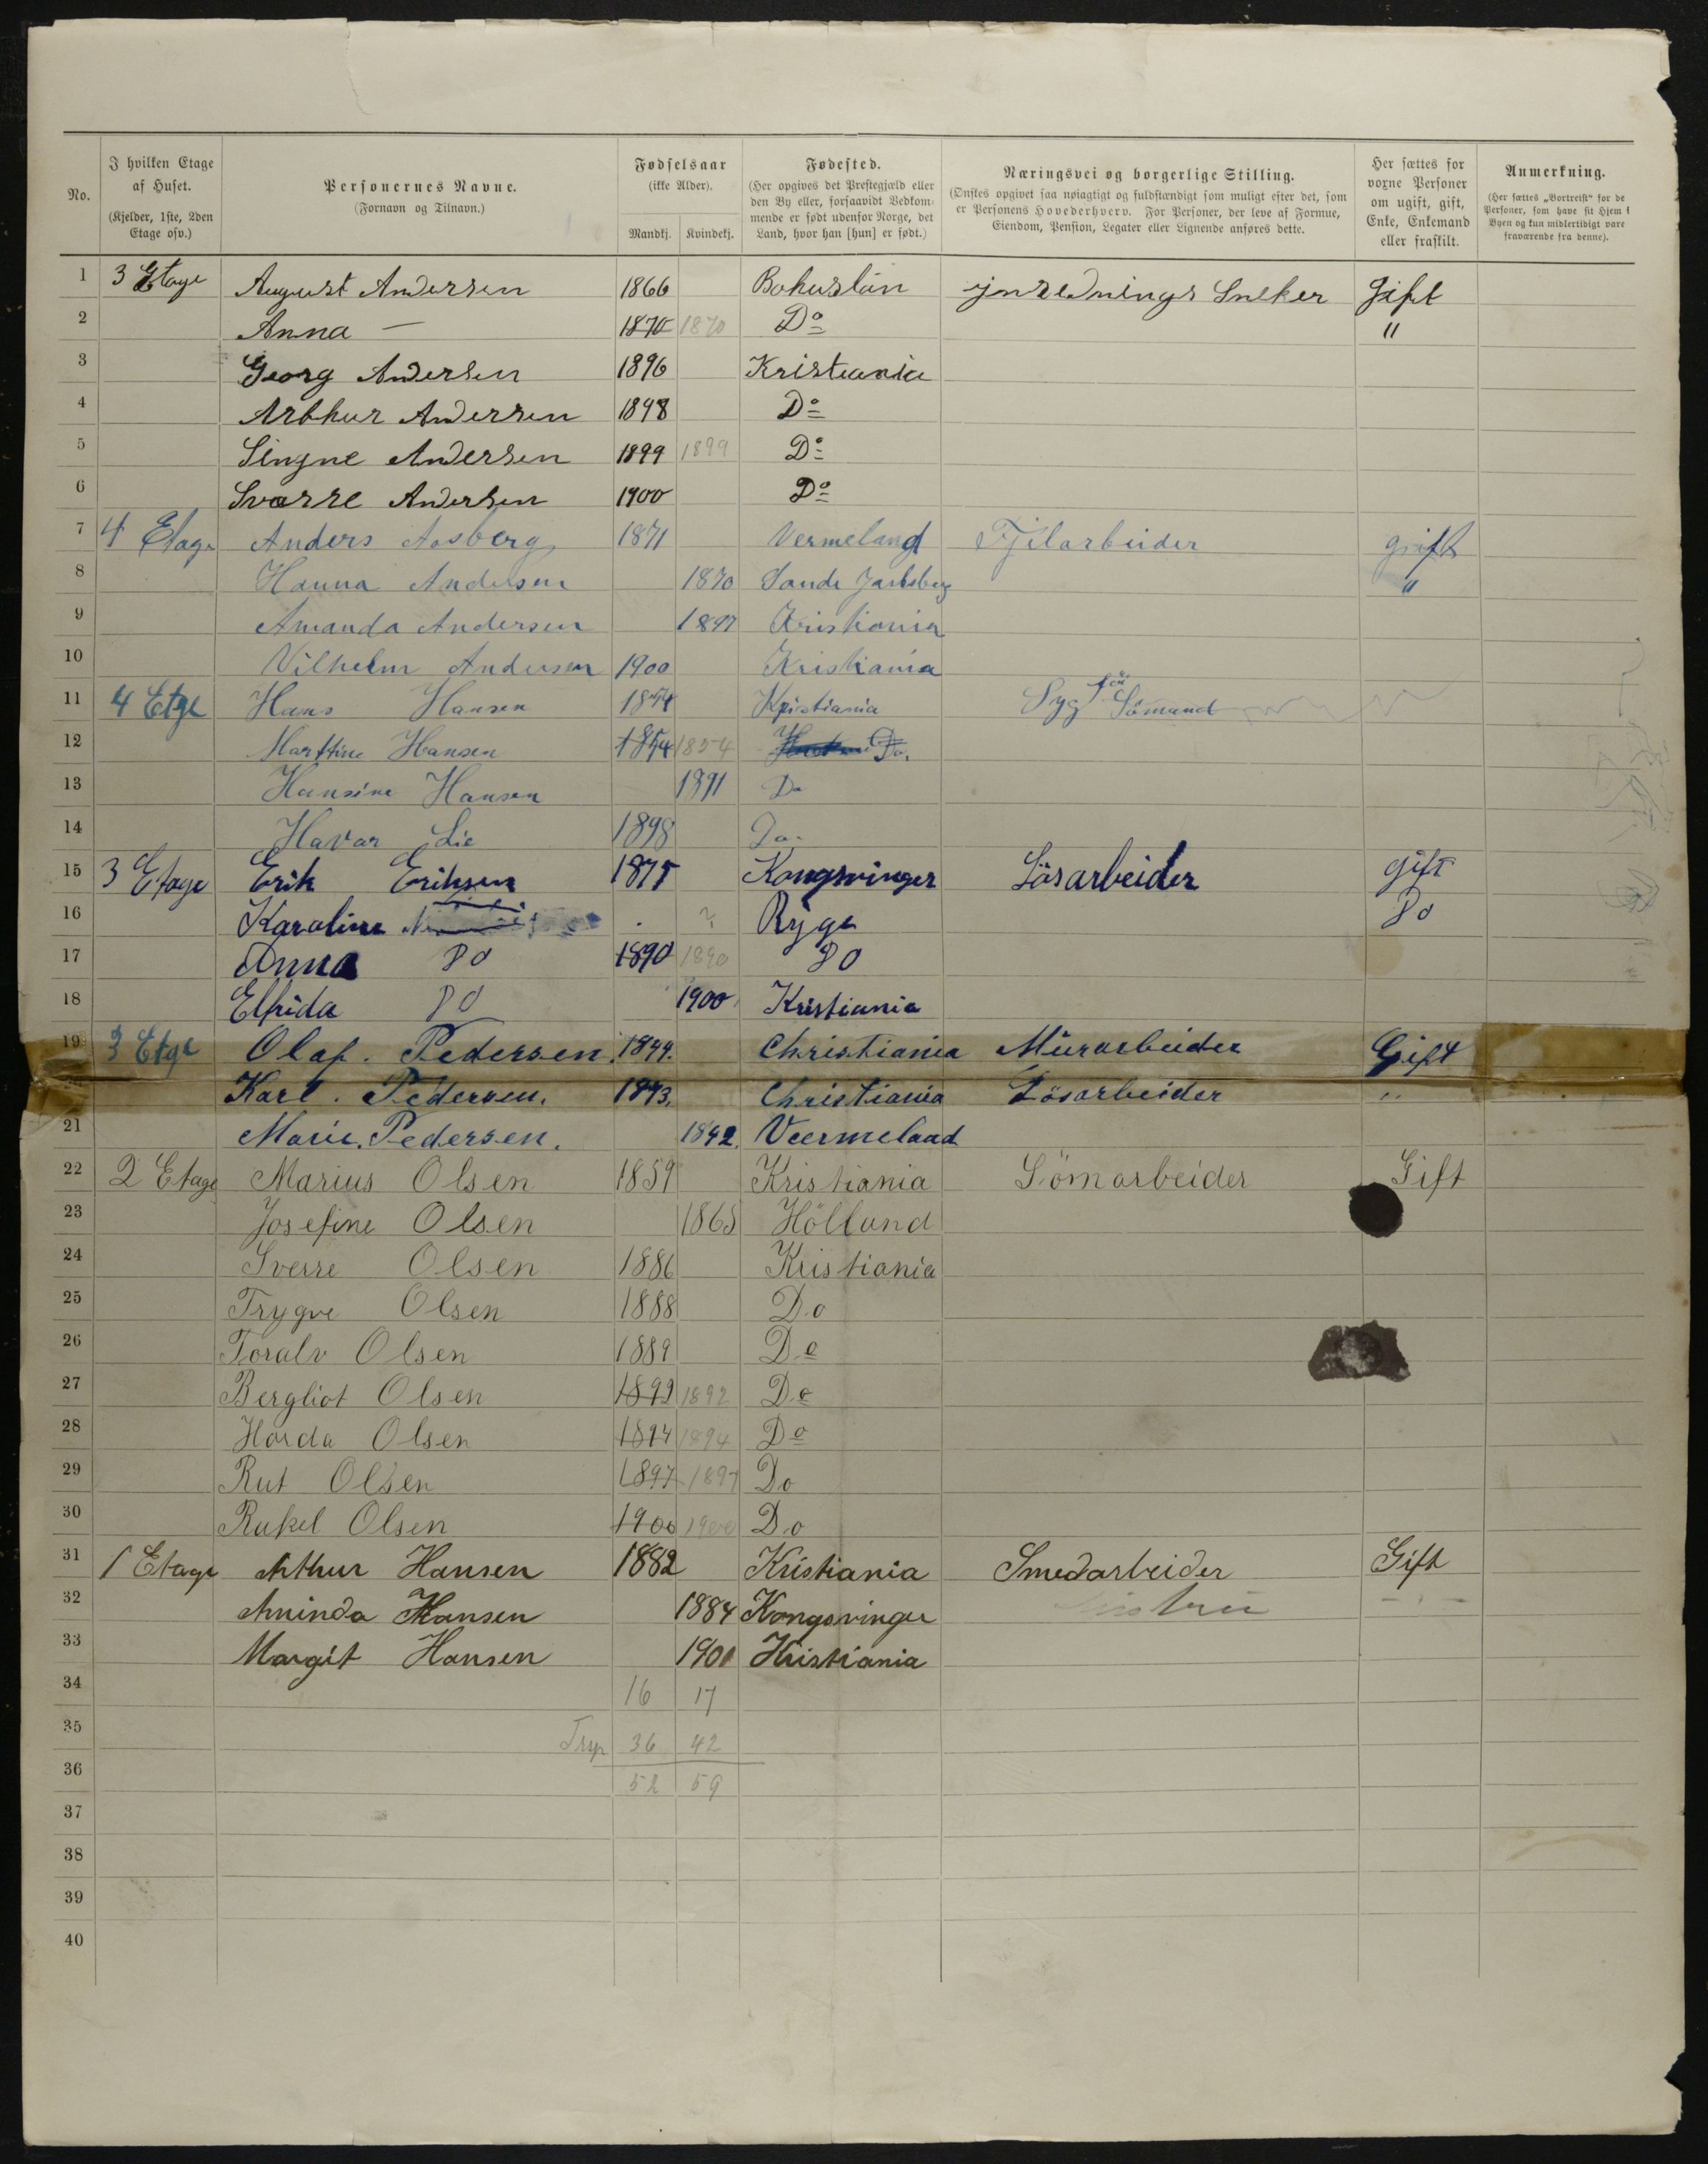 No. | I hvilken Etage af Huset. (Kjelder, 1ste, 2den Etage osv.) | Personernes Navne. (Fornavn og Tilnavn.) | Fødselsaar (ikke Alder). Mandkj. Kvindekj. | Fødested. (Her opgives det Prestegjæld eller den By eller, forsaavidt Vedkommende er født udenfor Norge, det Land, hvor han [hun] er født.) | Næringsvei og borgerlige Stilling. (Ønskes opgivet saa nøiagtigt og fuldstændigt som muligt efter det, som er Personens Hovederhverv. For Personer, der leve af Formue, Eiendom, Pension, Legater eller Lignende anføres dette. | Her sættes for voxne Personer om ugift, gift, Enke, Enkemand eller fraskilt. | Anmerkning. (Her sættes „Bortreist“ for de Personer, som have sit Hjem i Byen og kun midlertidigt vare fraværende fra denne).
1 3 Etage August Andersen 1866 Bohuslän jnrednings Sneker Gift
2 Anna — 1870 1870 Do "
3 Georg Andersen 1896 Kristiania
4 Arthur Andersen 1898 Do
5 Singne Andersen 1899 1899 Do
6 Svarre Andersen 1900 Do
7 4 Etage Anders Aasberg 1871 Vermeland Fjelarbeider gift
8 Hanna Andersen 1870 Sande Jarlsberg "
9 Amanda Andersen 1897 Kristiania
10 Vilhelm Andersen 1900 Kristiania
11 4 Etge Hans Hansen Kristiania Syg Sömand
12 Marthine Hansen 1854 1854 Do.
13 Hansine Hansen 1891 Do
14 Havar Lie 1898 Do.
15 3 Etage Erik Eriksen 1875 Kongsvinger Lösarbeider gift
16 Karoline ? Rÿge Do
17 Anna Do 1890 1890 Do
18 Elfrida Do 1900 Kristiania
19 3 Etge Olaf. Pedersen. 1844. Christiania Mürarbeider Gift
Karl. Pedersen. 1873. Christiania Lösarbeider "
21 Marie. Pedersen. 1842. Veermeland
22 2 Etage Marius Olsen 1859 Kristiania Sömarbeider Gift
23 Josefine Olsen 1868 Höllund
24 Sverre Olsen 1886 Kristiania
25 Trygve Olsen 1888 Do
26 Toralv Olsen 1889 Do
27 Bergliot Olsen 1892 1892 Do
28 Horda Olsen 1894 1894 Do
29 Rut Olsen 1897 1897 Do
30 Rakel Olsen 1900 1900 Do
31 1 Etage Arthur Hansen 1882 Kristiania Smedarbeider Gift
32 Aninda Hansen 1884 Kongsvinger Hustru - " -
33 Margit Hansen 1901 Kristiania
34 16 17
35 36 42
36 52 59
37
38
39
40